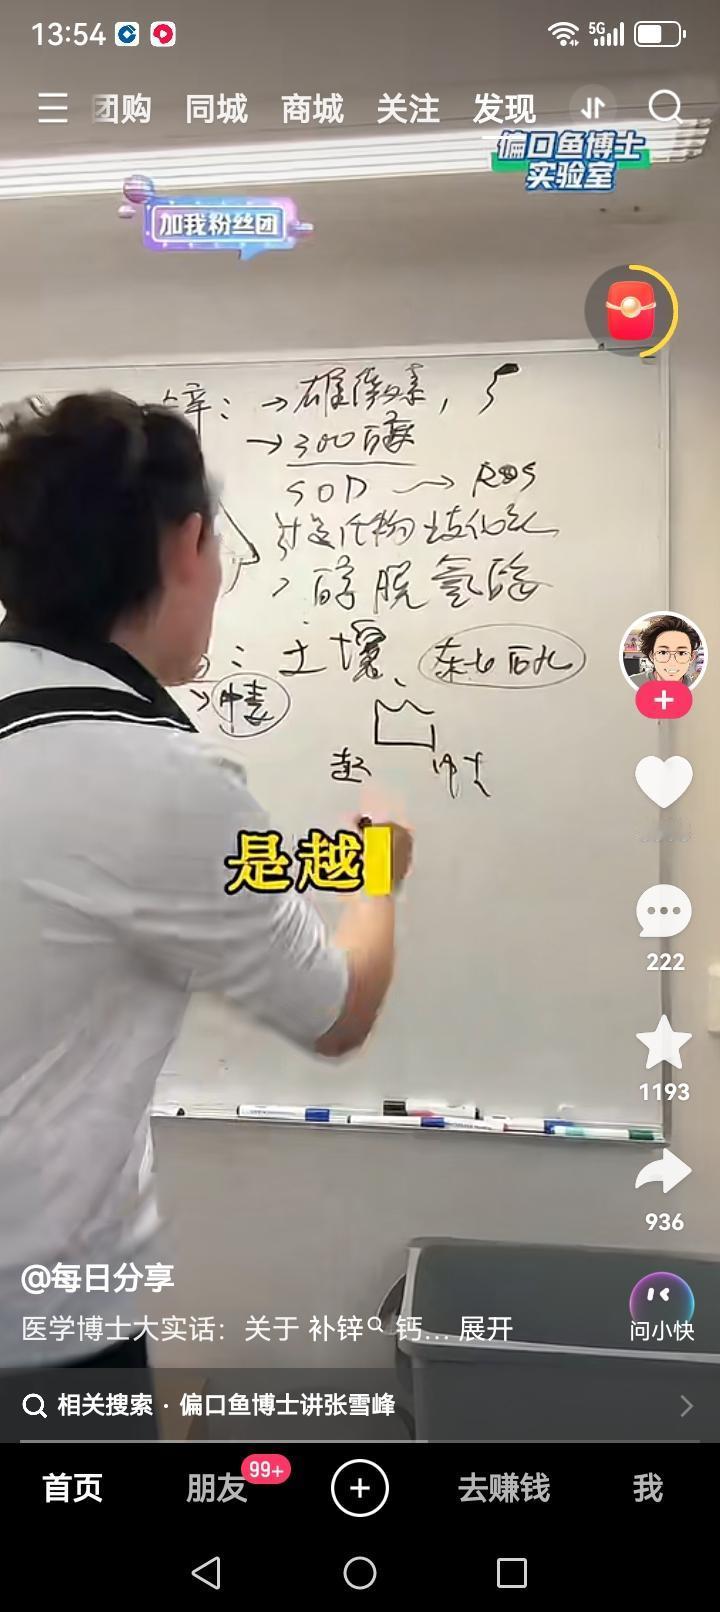 13:54
5G
团购 同城 商城 关注 发现
偏口鱼博士
实验室
加我粉丝团
锌：→雄激素，
→300百酶
SOD → ROS
过氧化物歧化酶
醇脱氢酶
：土壤、
中毒
是越
222
1193
936
@每日分享
医学博士大实话：关于 补锌 钙... 展开
问小快
相关搜索 · 偏口鱼博士讲张雪峰
首页 朋友 99+ 去赚钱 我